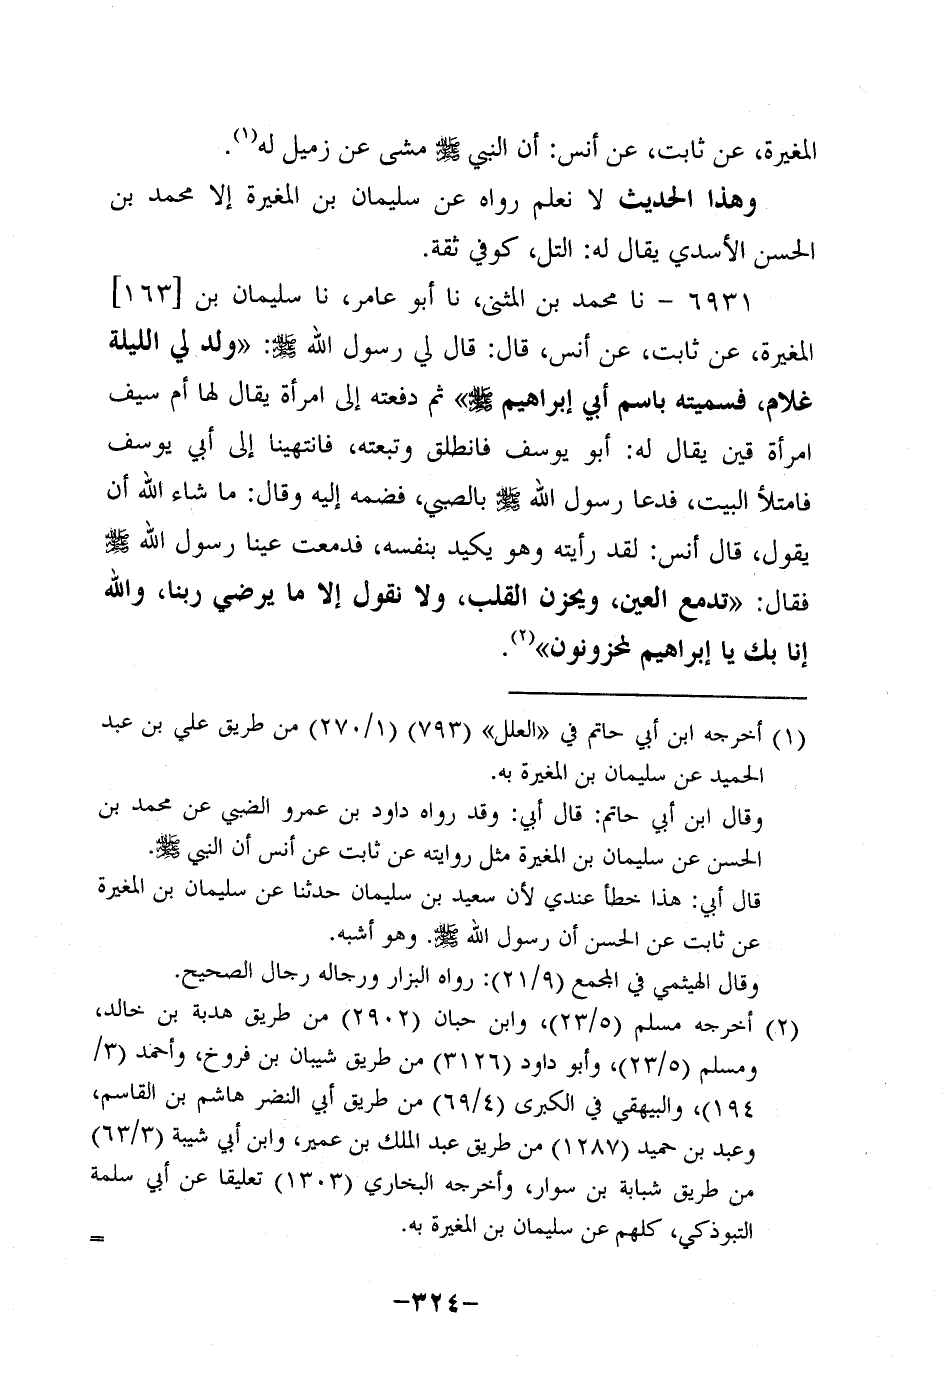 المغيرة، عن ثابت، عن أنس: أن النبي ﷺ مشى عن زميل له(١).
وهذا الحديث لا نعلم رواه عن سليمان بن المغيرة إلا محمد بن
الحسن الأسدي يقال له: التل، كوفي ثقة.
٦٩٣١ - نا محمد بن المثنى، نا أبو عامر، نا سليمان بن [١٦٣]
المغيرة، عن ثابت، عن أنس، قال: قال لي رسول الله ﷺ: «ولد لي الليلة
غلام، فسميته باسم أبي إبراهيم ﷺ» ثم دفعته إلى امرأة يقال لها أم سيف
امرأة قين يقال له: أبو يوسف فانطلق وتبعته، فانتهينا إلى أبي يوسف
فامتلأ البيت، فدعا رسول الله ﷺ بالصبي، فضمه إليه وقال: ما شاء الله أن
يقول، قال أنس: لقد رأيته وهو يكيد بنفسه، فدمعت عينا رسول الله ﷺ
فقال: «تدمع العين، ويحزن القلب، ولا نقول إلا ما يرضي ربنا، والله
إنا بك يا إبراهيم لمحزونون»(٢).
(١) أخرجه ابن أبي حاتم في «العلل» (٧٩٣) (٢٧٠/١) من طريق علي بن عبد
الحميد عن سليمان بن المغيرة به.
وقال ابن أبي حاتم: قال أبي: وقد رواه داود بن عمرو الضبي عن محمد بن
الحسن عن سليمان بن المغيرة مثل روايته عن ثابت عن أنس أن النبي ﷺ.
قال أبي: هذا خطأ عندي لأن سعيد بن سليمان حدثنا عن سليمان بن المغيرة
عن ثابت عن الحسن أن رسول الله ﷺ. وهو أشبه.
وقال الهيثمي في المجمع (٢١/٩): رواه البزار ورجاله رجال الصحيح.
(٢) أخرجه مسلم (٢٣/٥)، وابن حبان (٢٩٠٢) من طريق هدبة بن خالد،
ومسلم (٢٣/٥)، وأبو داود (٣١٢٦) من طريق شيبان بن فروخ، وأحمد (٣/
١٩٤)، والبيهقي في الكبرى (٦٩/٤) من طريق أبي النضر هاشم بن القاسم،
وعبد بن حميد (١٢٨٧) من طريق عبد الملك بن عمير، وابن أبي شيبة (٦٣/٣)
من طريق شبابة بن سوار، وأخرجه البخاري (١٣٠٣) تعليقا عن أبي سلمة
التبوذكي، كلهم عن سليمان بن المغيرة به.
=
-٣٢٤-